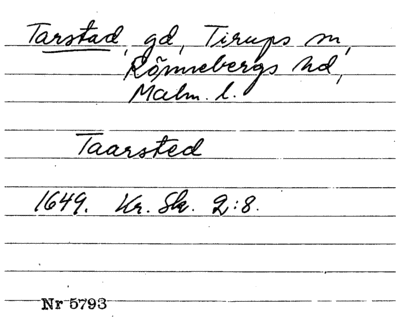 Tarstad, gd, Tirups sn,
Rönnebergs hd,
Malm. l.
Taarsted
1649. Kr. Sk. 2:8.
Nr 5793